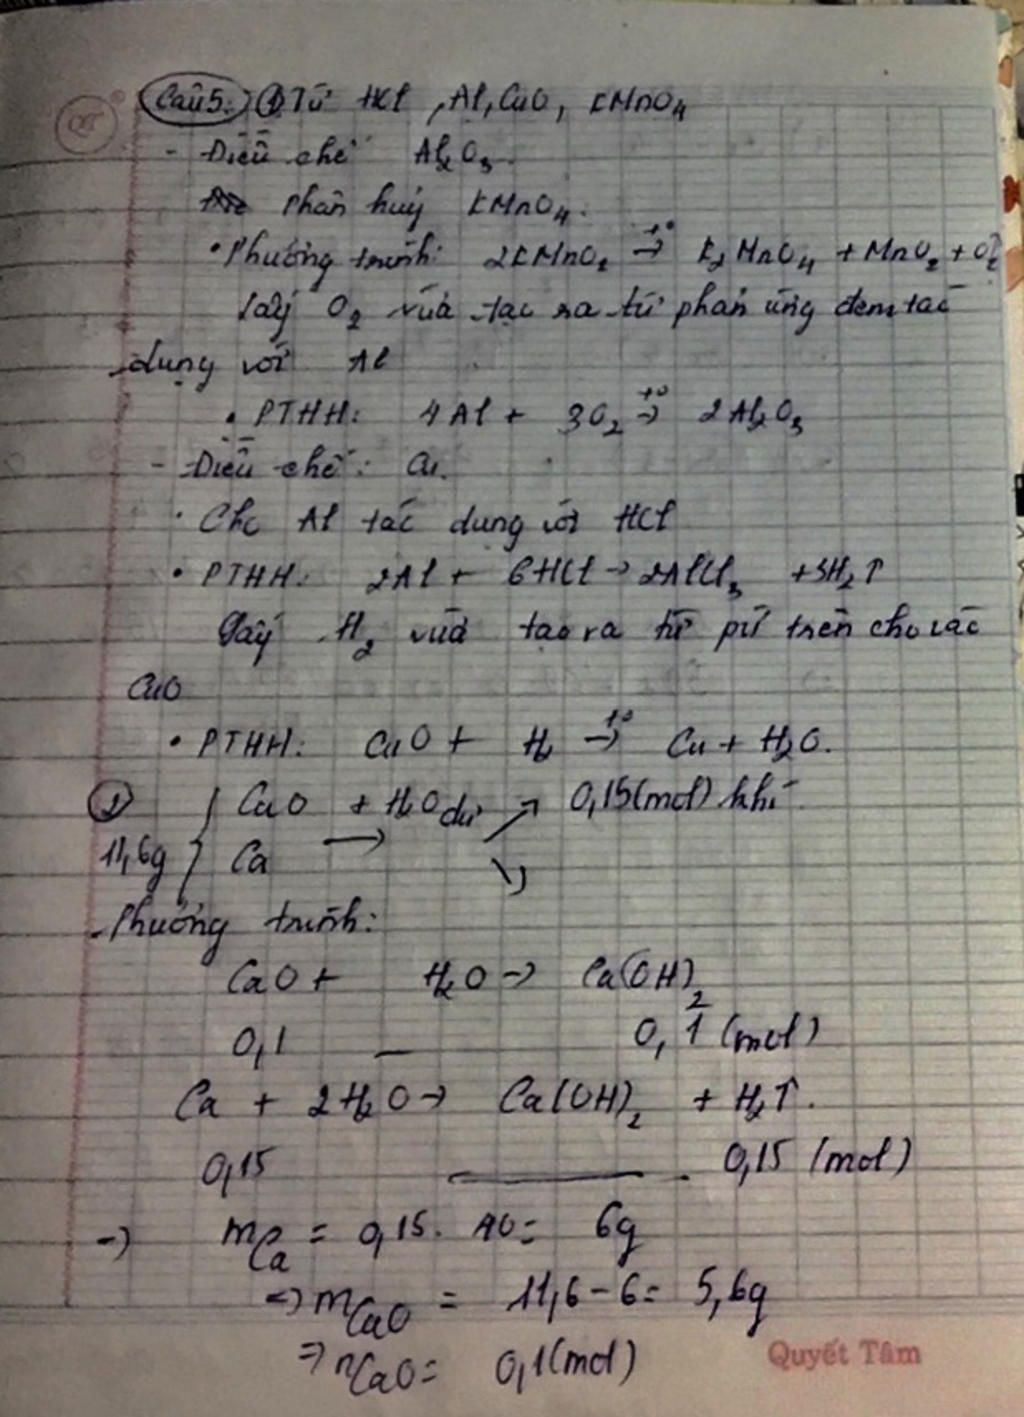 Câu 5: ① Từ HCl, Al, CuO, KMnO4
- Điều chế Al2O3
phân huỷ KMnO4.
• Phương trình: 2KMnO2 t°→ K2MnO4 + MnO2 + O2↑
Lấy O2 vừa tạo ra từ phản ứng đem tác
dụng với Al
• PTHH: 4Al + 3O2 t°→ 2Al2O3
- Điều chế: Cu.
• Cho Al tác dụng với HCl
• PTHH: 2Al + 6HCl → 2AlCl3 + 3H2↑
Lấy H2 vừa tạo ra từ pứ trên cho các
CuO
• PTHH: CuO + H2 t°→ Cu + H2O.
CaO + H2O dư ↗ 0,15(mol) khí
11,6g Ca → ↘
Phương trình:
CaO + H2O → Ca(OH)2
0,1 — 0,1 (mol)
Ca + 2H2O → Ca(OH)2 + H2↑.
0,15 — 0,15 (mol)
→ mCa = 0,15. 40 = 6g
⇒ mCaO = 11,6 - 6 = 5,6g
⇒ nCaO = 0,1(mol)
Quyết Tâm